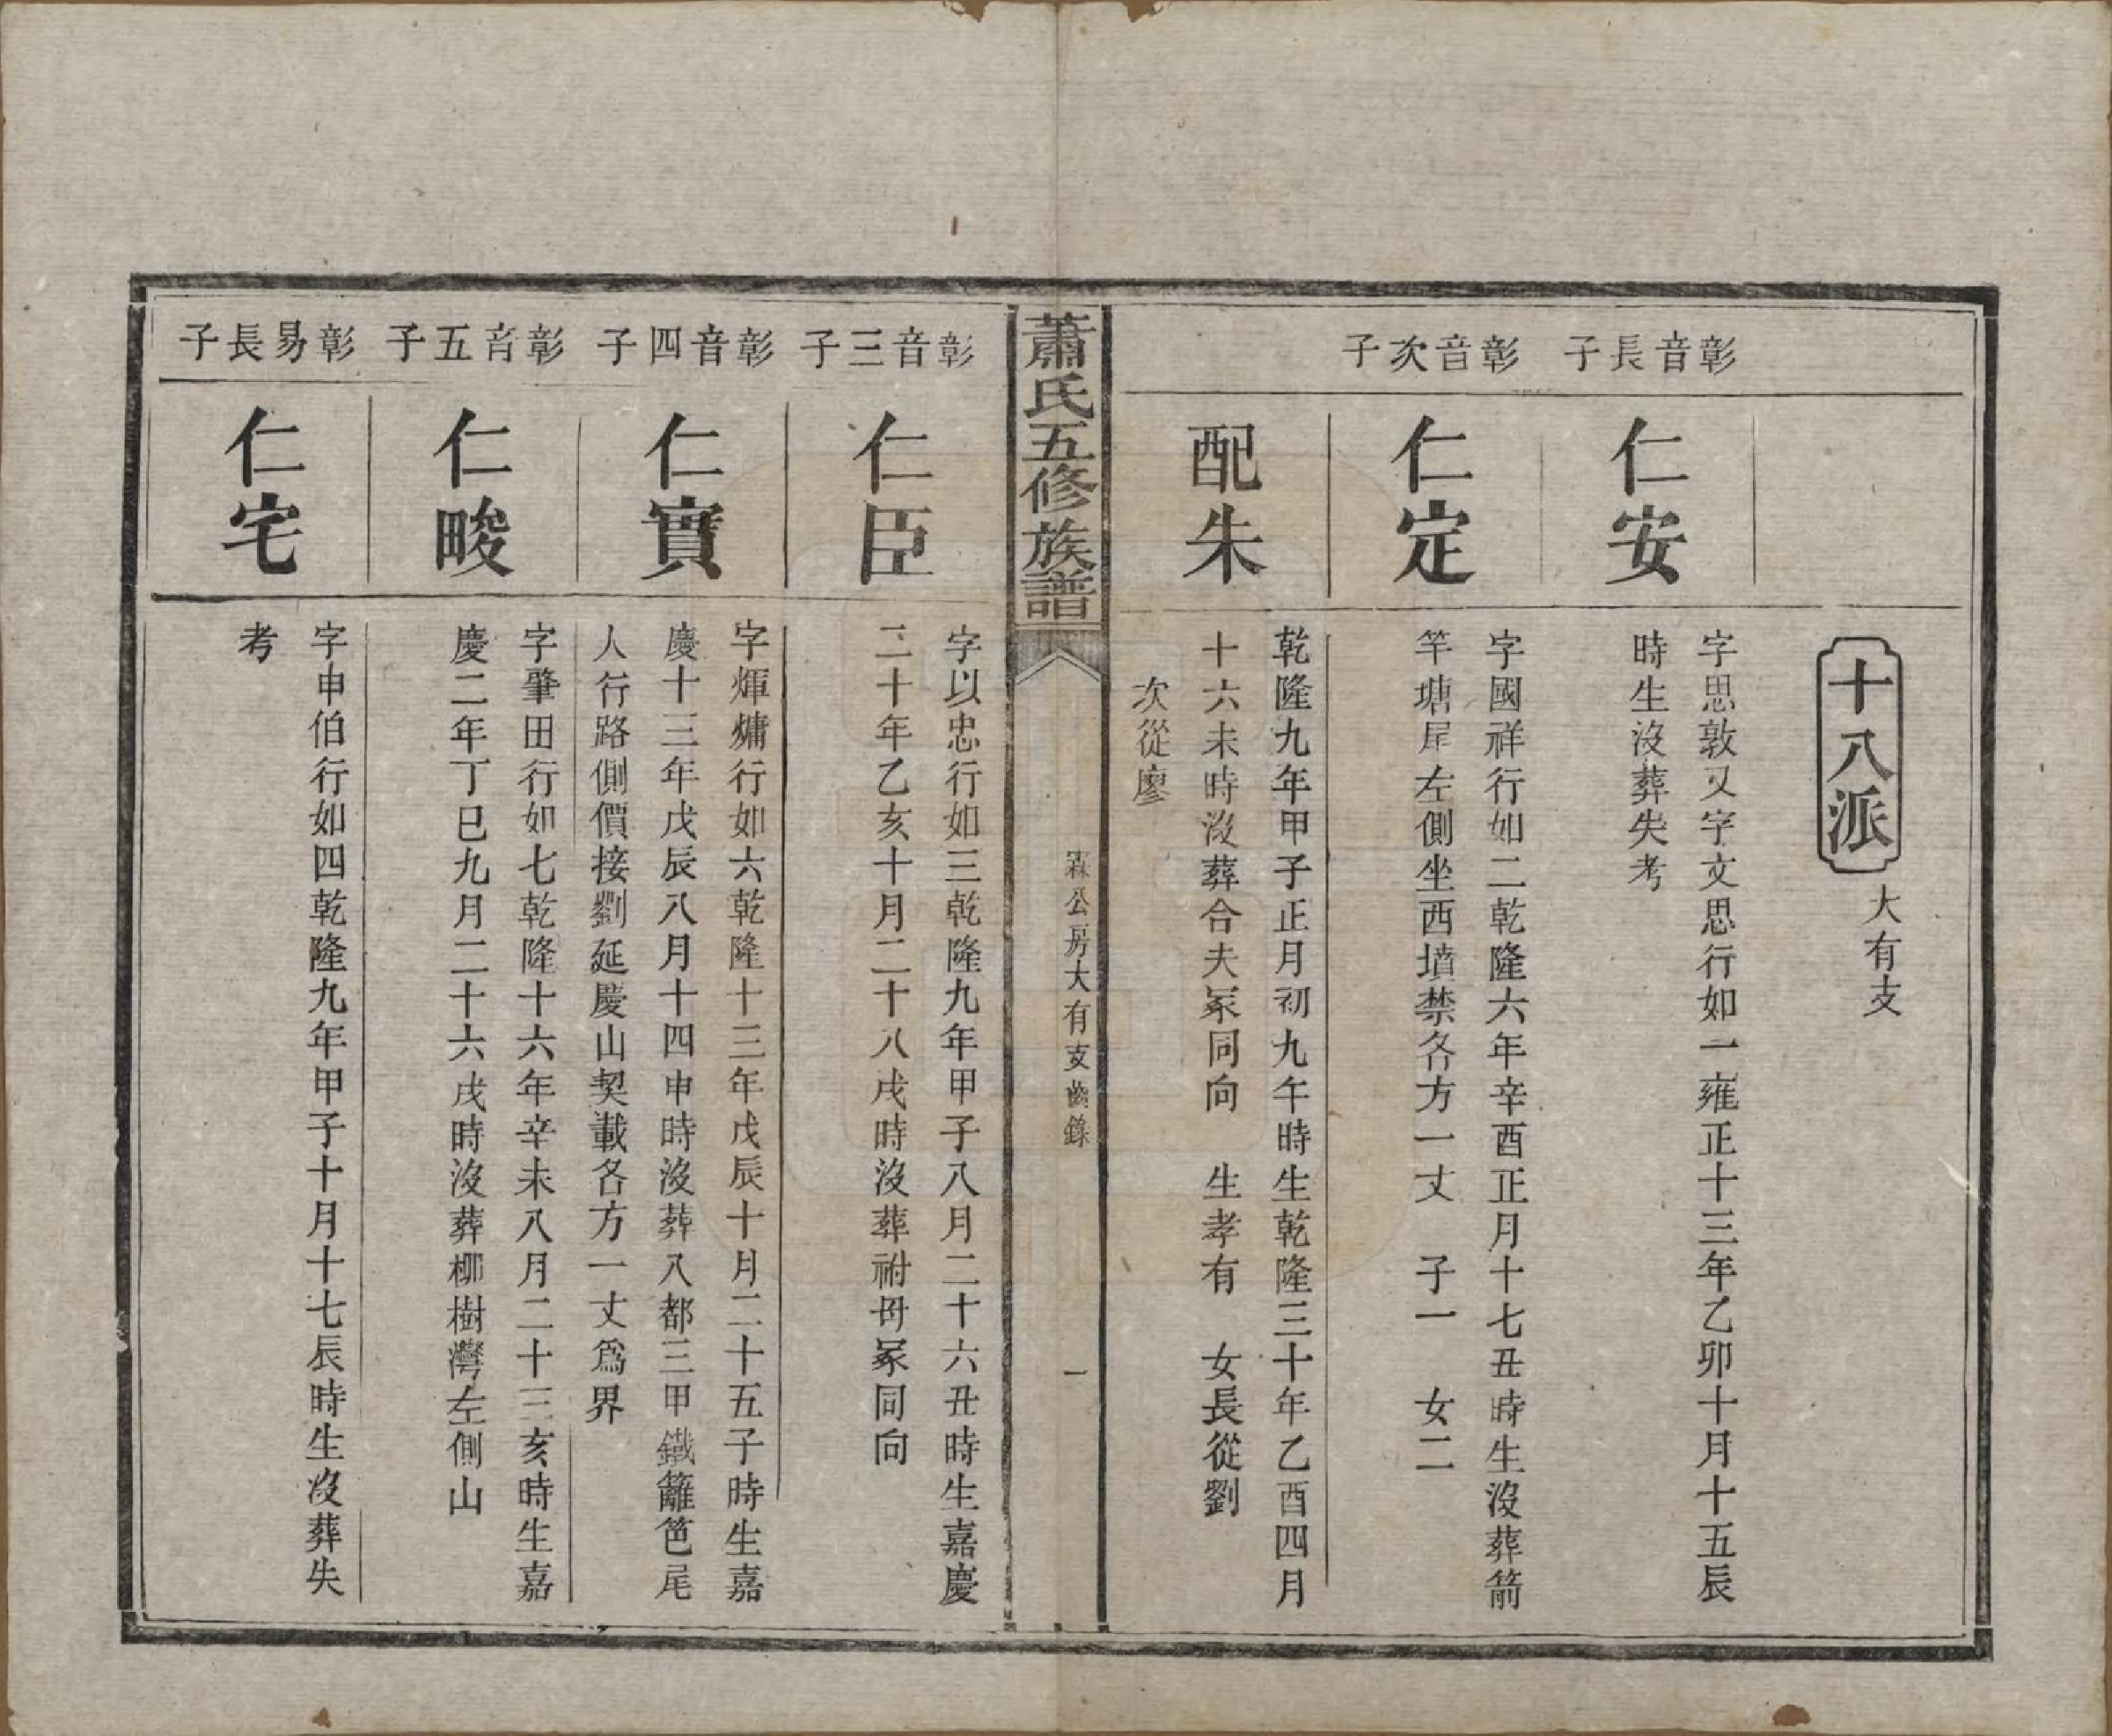 十八派 大有支
彰音長子
仁安
字思敦又字文思行如一雍正十三年乙卯十月十五辰
時生沒葬失考
彰音次子
仁定
字國祥行如二乾隆六年辛酉正月十七丑時生沒葬箭
竿塘尾左側坐西墳禁各方一丈 子一 女二
配朱
乾隆九年甲子正月初九午時生乾隆三十年乙酉四月
十六未時沒葬合夫冢同向 生孝有 女長從劉
次從廖
蕭氏五修族譜
霖公房大有支齒錄
一
彰音三子
仁臣
字以忠行如三乾隆九年甲子八月二十六丑時生嘉慶
二十年乙亥十月二十八戌時沒葬祔母冢同向
彰音四子
仁實
字煇墉行如六乾隆十三年戊辰十月二十五子時生嘉
慶十三年戊辰八月十四申時沒葬八都三甲鐵籬笆尾
人行路側價接劉延慶山契載各方一丈爲界
彰音五子
仁畯
字肇田行如七乾隆十六年辛未八月二十三亥時生嘉
慶二年丁巳九月二十六戌時沒葬柳樹灣左側山
彰易長子
仁宅
字申伯行如四乾隆九年甲子十月十七辰時生沒葬失
考